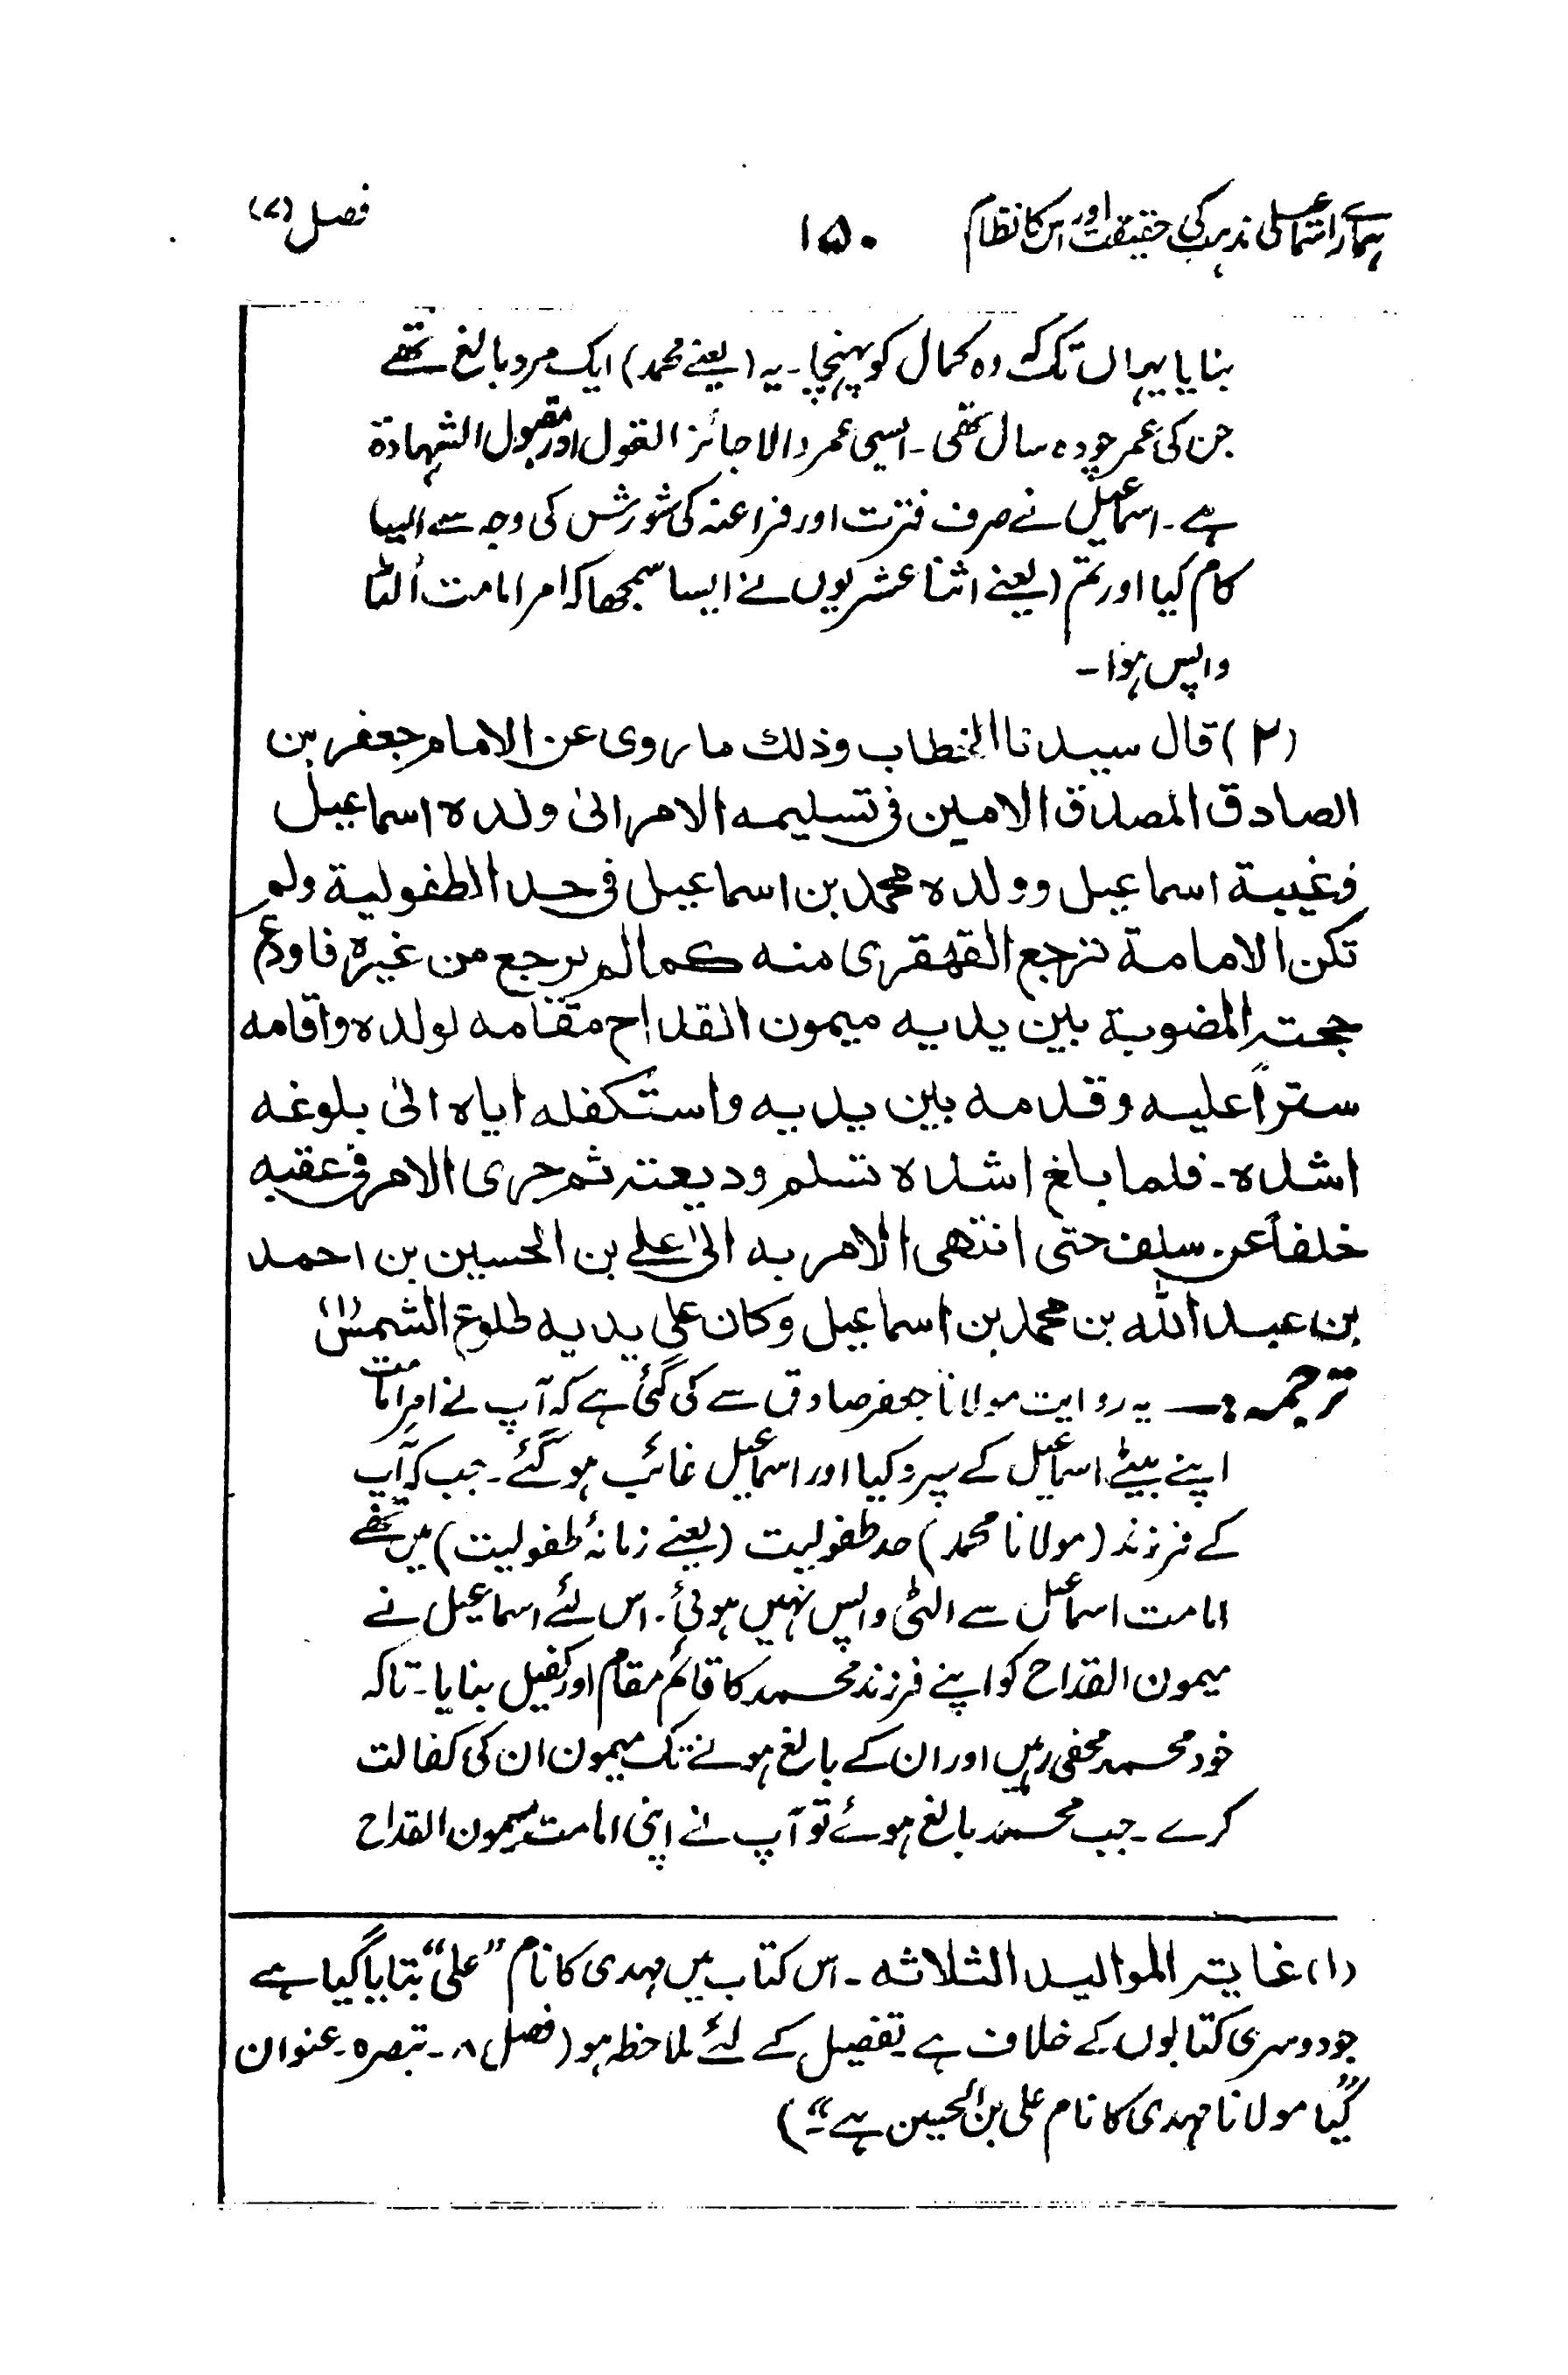 ہمارے اسماعیلی مذہب کی حقیقت اور اس کا نظام ۱۵۰ فصل (۷)
بنایا یہاں تک کہ وہ کمال کو پہنچا۔ یہ (یعنے محمد) ایک مرد بالغ تھے
جن کی عمر چودہ سال تھی۔ ایسی عمر والا جائز القول اور مقبول الشہادة
ہے۔ اسماعیل نے صرف فترت اور فراعنہ کی شورش کی وجہ سے ایسا
کام کیا اور تم (یعنے اثنا عشریوں نے ایسا سمجھا کہ امر امامت اُلٹا
واپس ہوا۔
(۲) قال سیدنا الخطاب وذلك ما روی عن الامام جعفر بن
الصادق المصدق الامین فی تسلیمه الامر الیٰ ولده اسماعیل
وغیبة اسماعیل وولده محمد بن اسماعیل فی حد الطفولیة ولم
تکن الامامة ترجع القهقری منه کما لم یرجع من غیره فاودع
حجته المضویة بین یدیه میمون القداح مقامه لولده واقامه
ستراً علیه وقدمه بین یدیه واستکفله ایاه الیٰ بلوغه
اشده۔ فلما بلغ اشده تسلم ودیعته ثم جری الامر فی عقبه
خلفاً عن سلف حتی انتهی الامر به الیٰ علی بن الحسین بن احمد
بن عبد الله بن محمد بن اسماعیل وکان علی یدیه طلوع الشمس(۱)
ترجمہ :۔ یہ روایت مولانا جعفر صادق سے کی گئی ہے کہ آپ نے امر امامت
اپنے بیٹے اسماعیل کے سپرد کیا اور اسماعیل غائب ہو گئے۔ جب کہ آپ
کے فرزند (مولانا محمد) حد طفولیت (یعنے زمانۂ طفولیت) میں تھے
امامت اسماعیل سے الٹی واپس نہیں ہوئی۔ اس لئے اسماعیل نے
میمون القداح کو اپنے فرزند محمد کا قائم مقام اور کفیل بنایا۔ تاکہ
خود محمد مخفی رہیں اور ان کے بالغ ہونے تک میمون ان کی کفالت
کرے۔ جب محمد بالغ ہوئے تو آپ نے اپنی امامت میمون القداح
(۱) غایتہ الموالید الثلاثہ۔ اس کتاب میں مہدی کا نام "علی" بتایا گیا ہے
جو دوسری کتابوں کے خلاف ہے۔ تفصیل کے لئے ملاحظہ ہو (فصل ۸۔ تبصرہ۔ عنوان
"کیا مولانا مہدی کا نام علی بن الحسین ہے"۔)